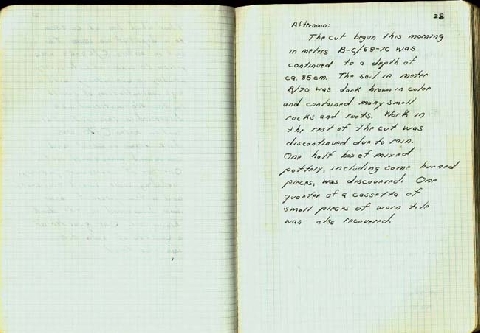 28
Afternoon:
The cut begun this morning
in meters B-G/68-76 was
continued to a depth of
ca. 85 cm. The soil in meter
B/70 was dark brown in color
and contained many small
rocks and roots. Work in
the rest of the cut was
discontinued due to rain.
One half box of mixed
pottery, including some burned
pieces, was discovered. One
quarter of a cassetta of
small pieces of worn tile
was also recovered.